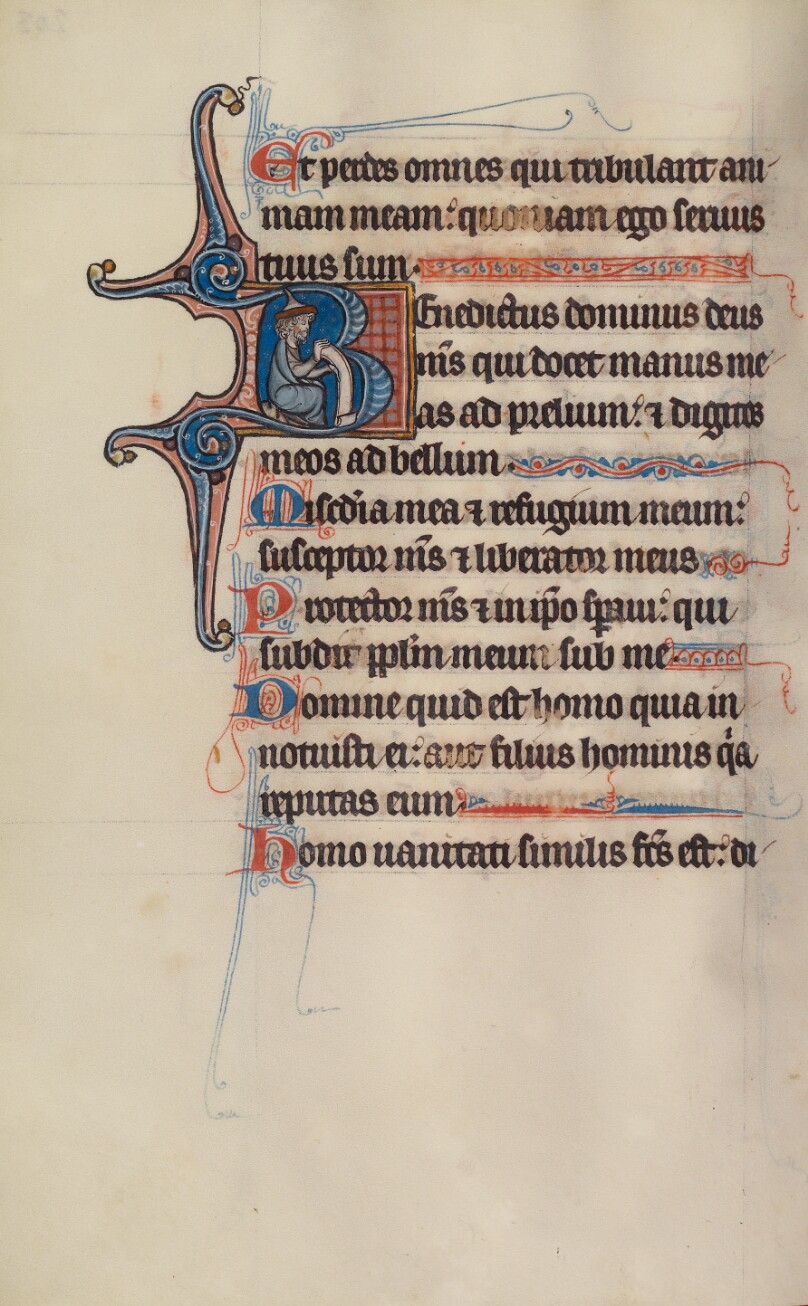 Et perdes omnes qui tribulant ani
mam meam: quoniam ego seruus
tuus sum.
Benedictus dominus deus
mr̄s qui docet manus me
as ad prelium: ⁊ digitos
meos ad bellum.
Misc̄dia mea ⁊ refugium meum:
susceptor mr̄s ⁊ liberator meus
Protector mr̄s ⁊ in ip̄o sp̄aui: qui
subdit pp̄lm meum sub me.
Domine quid est homo quia in
notuisti ei: aut filius hominis qͣa
reputas eum.
homo uanitati similis fc̄s est: di